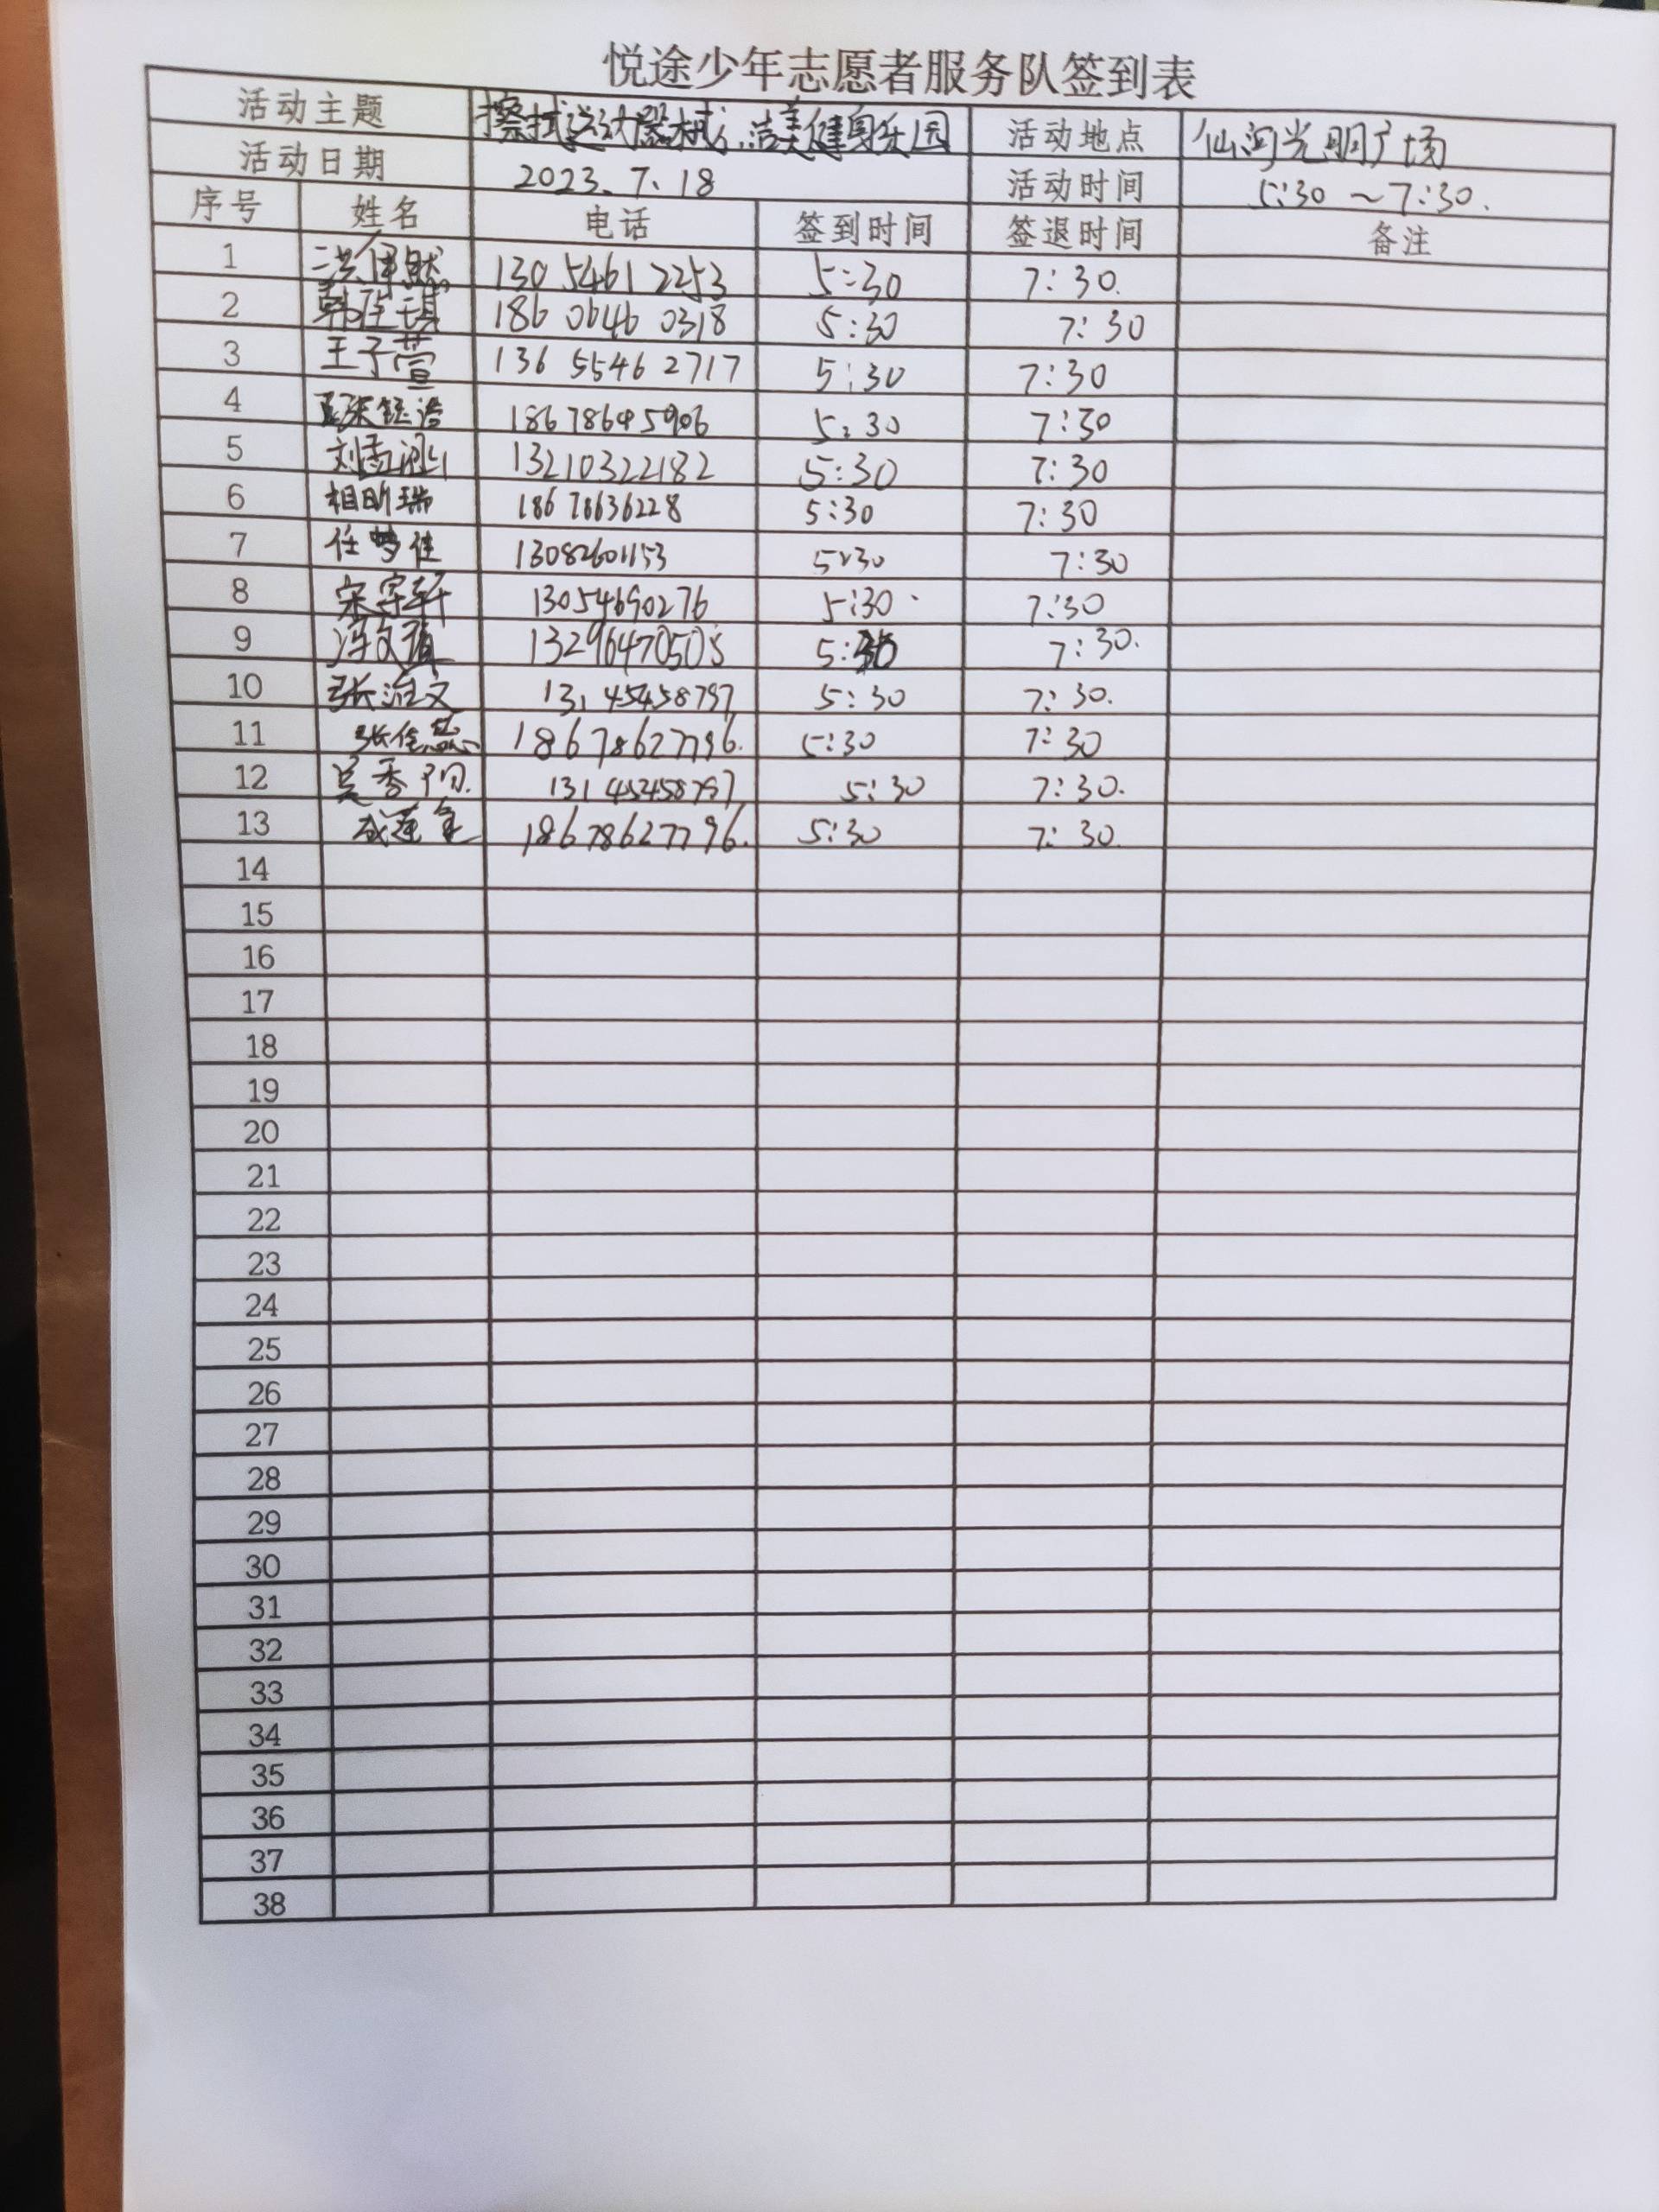 悦途少年志愿者服务队签到表
活动主题 擦拭运动器械，洁美健身乐园 活动地点 仙河光明广场
活动日期 2023.7.18 活动时间 5:30～7:30.
序号 姓名 电话 签到时间 签退时间 备注
1 13054612253 5:30 7:30.
2 韩佳琪 186 0646 0318 5:30 7:30
3 王子萱 136 5546 2717 5:30 7:30
4 5:30 7:30
5 刘孟 13210322182 5:30 7:30
6 相昕瑞 186 78636228 5:30 7:30
7 任梦佳 13082601153 5:30 7:30
8 宋宇轩 13054690276 5:30 7:30
9 冯文 13296470505 5:30 7:30.
10 张 文 131 45458797 5:30 7:30.
11 张佳蕊 18678627796. 5:30 7:30
12 吴秀 131 45458797 5:30 7:30.
13 成莲 18678627796. 5:30 7:30.
14
15
16
17
18
19
20
21
22
23
24
25
26
27
28
29
30
31
32
33
34
35
36
37
38